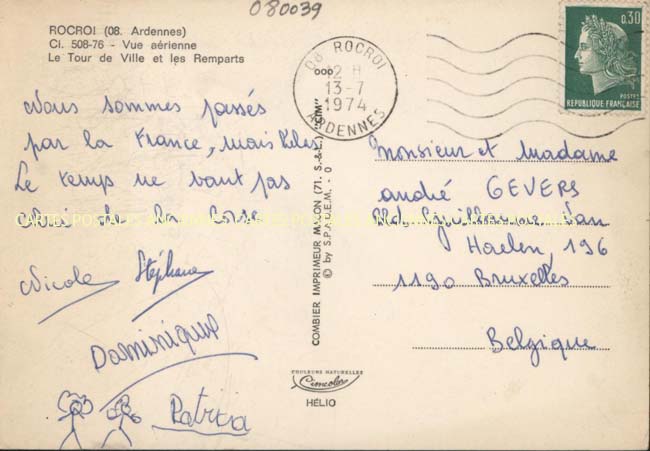 080039
ROCROI (08. Ardennes)
Cl. 508-76 - Vue aérienne
Le Tour de Ville et les Remparts
Nous sommes passés
par la France, mais hélas
Le temps ne vaut pas
celui de la Corse
Nicole Stéphane
Dominique
Patricia
COMBIER IMPRIMEUR MACON (71. S.-&-L.) "CIM"
© by S.P.A.D.E.M. - O
COULEURS NATURELLES
Cimcolor
HÉLIO
08 ROCROI
12 H
13-7
1974
ARDENNES
0,30
POSTES
REPUBLIQUE FRANÇAISE
Monsieur et Madame
André GEVERS
Bd Guillaume Van
Haelen, 196
1190 Bruxelles
Belgique
CARTES POSTALES ANCIENNES